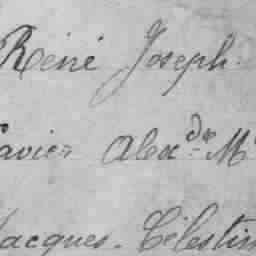 René Joseph.
avier Alexdre M
Jacques. Célestin